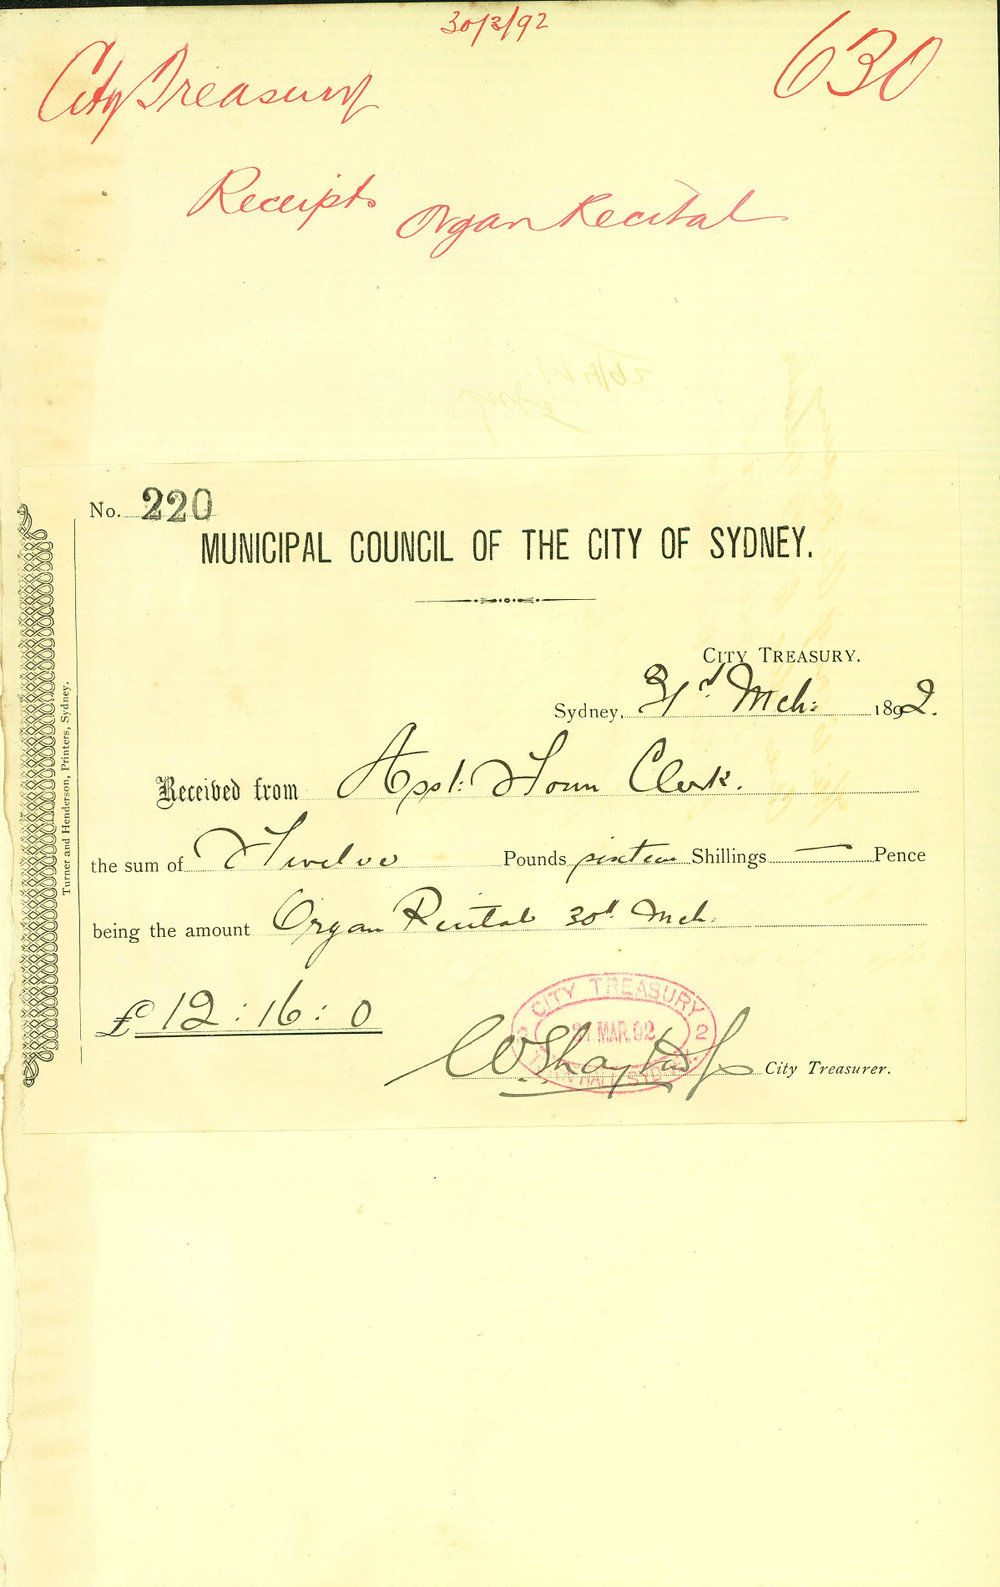 30/3/92
City Treasury
630
Receipts Organ Recital
No. 220
MUNICIPAL COUNCIL OF THE CITY OF SYDNEY.
CITY TREASURY.
Sydney, 31st Mch: 1892.
Received from Asst: Town Clerk.
the sum of Twelve Pounds sixteen Shillings — Pence
being the amount Organ Recital 30th Mch:
£ 12 : 16 : 0
CITY TREASURY
MAR. 02
2
TOWN HALL SYDNEY
City Treasurer.
Turner and Henderson, Printers, Sydney.